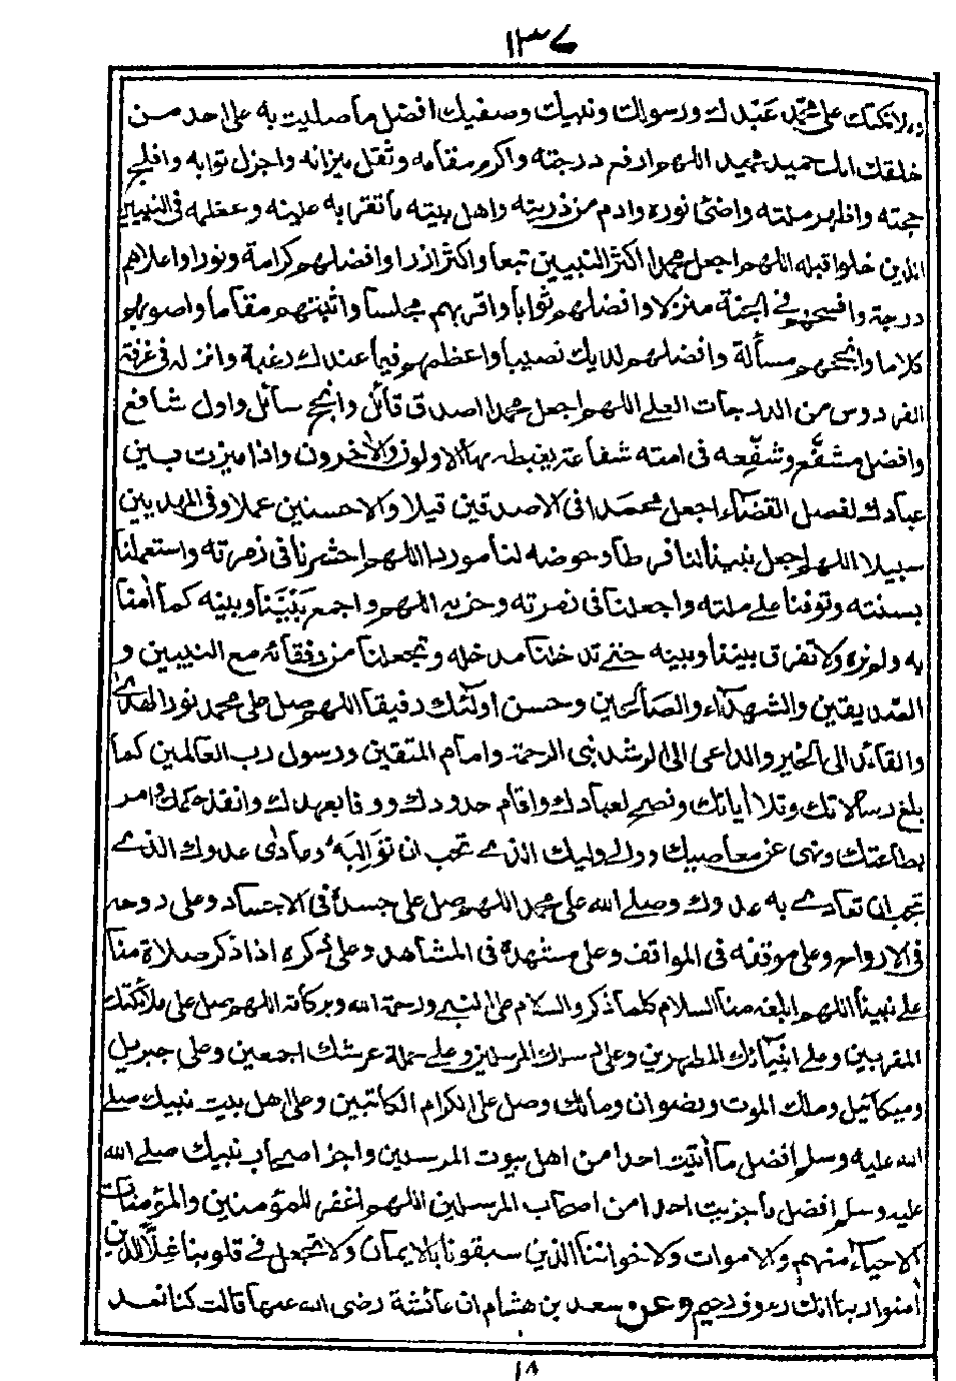 ١٣٧
وبركاتك على محمد عبدك ورسولك ونبيك وصفيك افضل ما صليت به على احد من
خلقك انك حميد مجيد اللهم وارفع درجته واكرم مقامه وثقل ميزانه واجزل ثوابه وافلج
حجته واظهر ملته واضئ نوره وادم من ذريته واهل بيته ما تقر به عينه وعظمه فى النبيين
الذين خلوا قبله اللهم اجعل محمدا اكثر النبيين تبعا واكثر ازرا وافضلهم كرامة ونورا واعلاهم
درجة وافسحهم فى الجنة منزلا وافضلهم ثوابا واقربهم مجلسا واثبتهم مقاما واصوبهم
كلاما وانجحهم مسألة وافضلهم لديك نصيبا واعظمهم فيما عندك رغبة وانزله فى غرفة
الفردوس من الدرجات العلے اللهم اجعل محمدا اصدق قائل وانجح سائل واول شافع
وافضل مشفَّع وشفِّعه فى امته شفاعة يغبطه بها الاولون والاٰخرون واذا ميزت بين
عبادك لفصل القضاء اجعل محمدا فى الاصدقين قيلا والاحسنين عملا وفى المهديين
سبيلا اللهم اجعل نبينا لنا فرطا وحوضه لنا موردا اللهم احشرنا فى زمرته واستعملنا
بسنته وتوفنا على ملته واجعلنا فى نصرته وحزبه اللهم واجمع بَيْنَنا وبينه كما اٰمنا
به ولم نره ولا تفرق بيننا وبينه حتے تدخلنا مدخله وتجعلنا من رفقائه مع النبيين و
الصديقين والشهدآء والصالحين وحسن اولٰئك رفيقا اللهم صل على محمد نور الهدے
والقائد الى الخير والداعى الى الرشد نبى الرحمة وامام المتقين ورسول رب العالمين كما
بلغ رسالاتك وتلا اياتك ونصح لعبادك واقام حدودك ووفا بعهدك وانفذ حكمك وامر
بطاعتك ونهى عن معاصيك ووالے وليك الذے تحب ان تُوَالِيَهُ وعادٰى عدوك الذے
تحب ان تعادے به عدوك وصلے الله على محمد اللهم صل على جسدهٖ فى الاجساد وعلى روحه
فى الارواح وعلى موقفه فى المواقف وعلى مشهدهٖ فى المشاهد وعلى ذكره اذا ذكر صلاة منا
على نبينا اللهم ابلغه منا السلام كلما ذكر والسلام على النبے ورحمة الله وبركاته اللهم صل على ملائكتك
المقربين وعلى انبيائك المطهرين وعلى رسلك المرسلين وعلے حملة عرشك اجمعين وعلى جبريل
وميكائيل وملك الموت ورضوان ومالك وصل على الكرام الكاتبين وعلى اهل بيت نبيك صلے
الله عليه وسلم افضل ما اٰتيت احدا من اهل بيوت المرسلين واجز اصحاب نبيك صلے الله
عليه وسلم افضل ما جزيت احدا من اصحاب المرسلين اللهم اغفر للمؤمنين والمؤمنات
الاحياء منهم والاموات ولاخواننا الذين سبقونا بالايمان ولا تجعل فى قلوبنا غِلّاً للذين
اٰمنوا ربنا انك رءوف رحيم وعن سعد بن هشام ان عائشة رضى الله عنها قالت كنا نعد
١٨